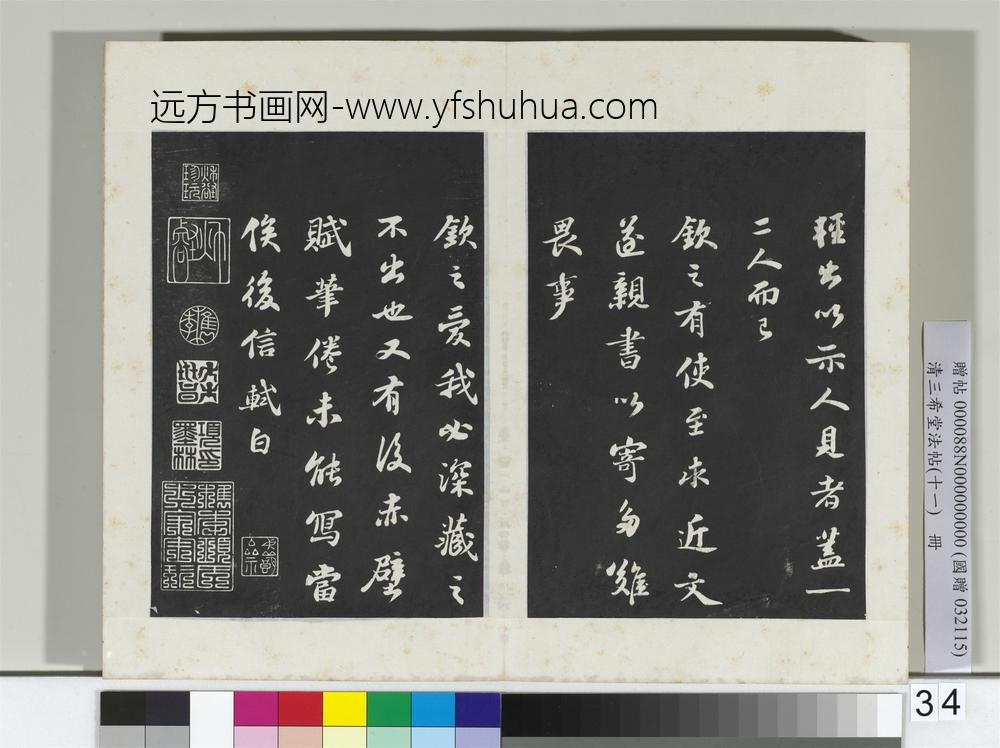 远方书画网-www.yfshuhua.com
輕出以示人見者蓋一
二人而已
欽之有使至求近文
遂親書以寄多難
畏事
欽之愛我必深藏之
不出也又有後赤壁
賦筆倦未能寫當
俟後信軾白
贈帖 000088N000000000 (國贈 032115)
清三希堂法帖(十一) 冊
34